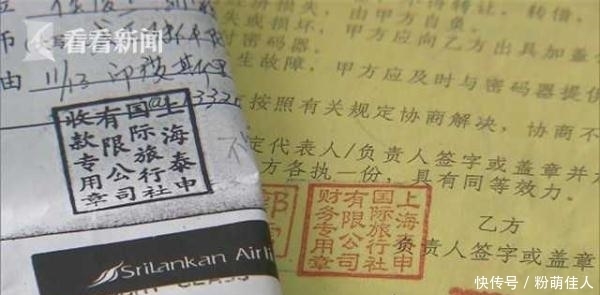 看看新闻
由 11/13
332
上海泰申
国际旅行社
有限公司
收款专用章
SriLankan Airli
不得转让，转借，
济损失，由甲方自负。
失或损坏，甲方应向乙方出具加盖
密码器。
生故障，甲方应及时与密码器提供
按照有关规定协商解决，协商不
定代表人/负责人签字或盖章并
方各执一份，具有同等效力。
乙方
负责人签字或盖章
上海泰申
国际旅行社
有限公司
财务专用章
快传号 / 粉萌佳人